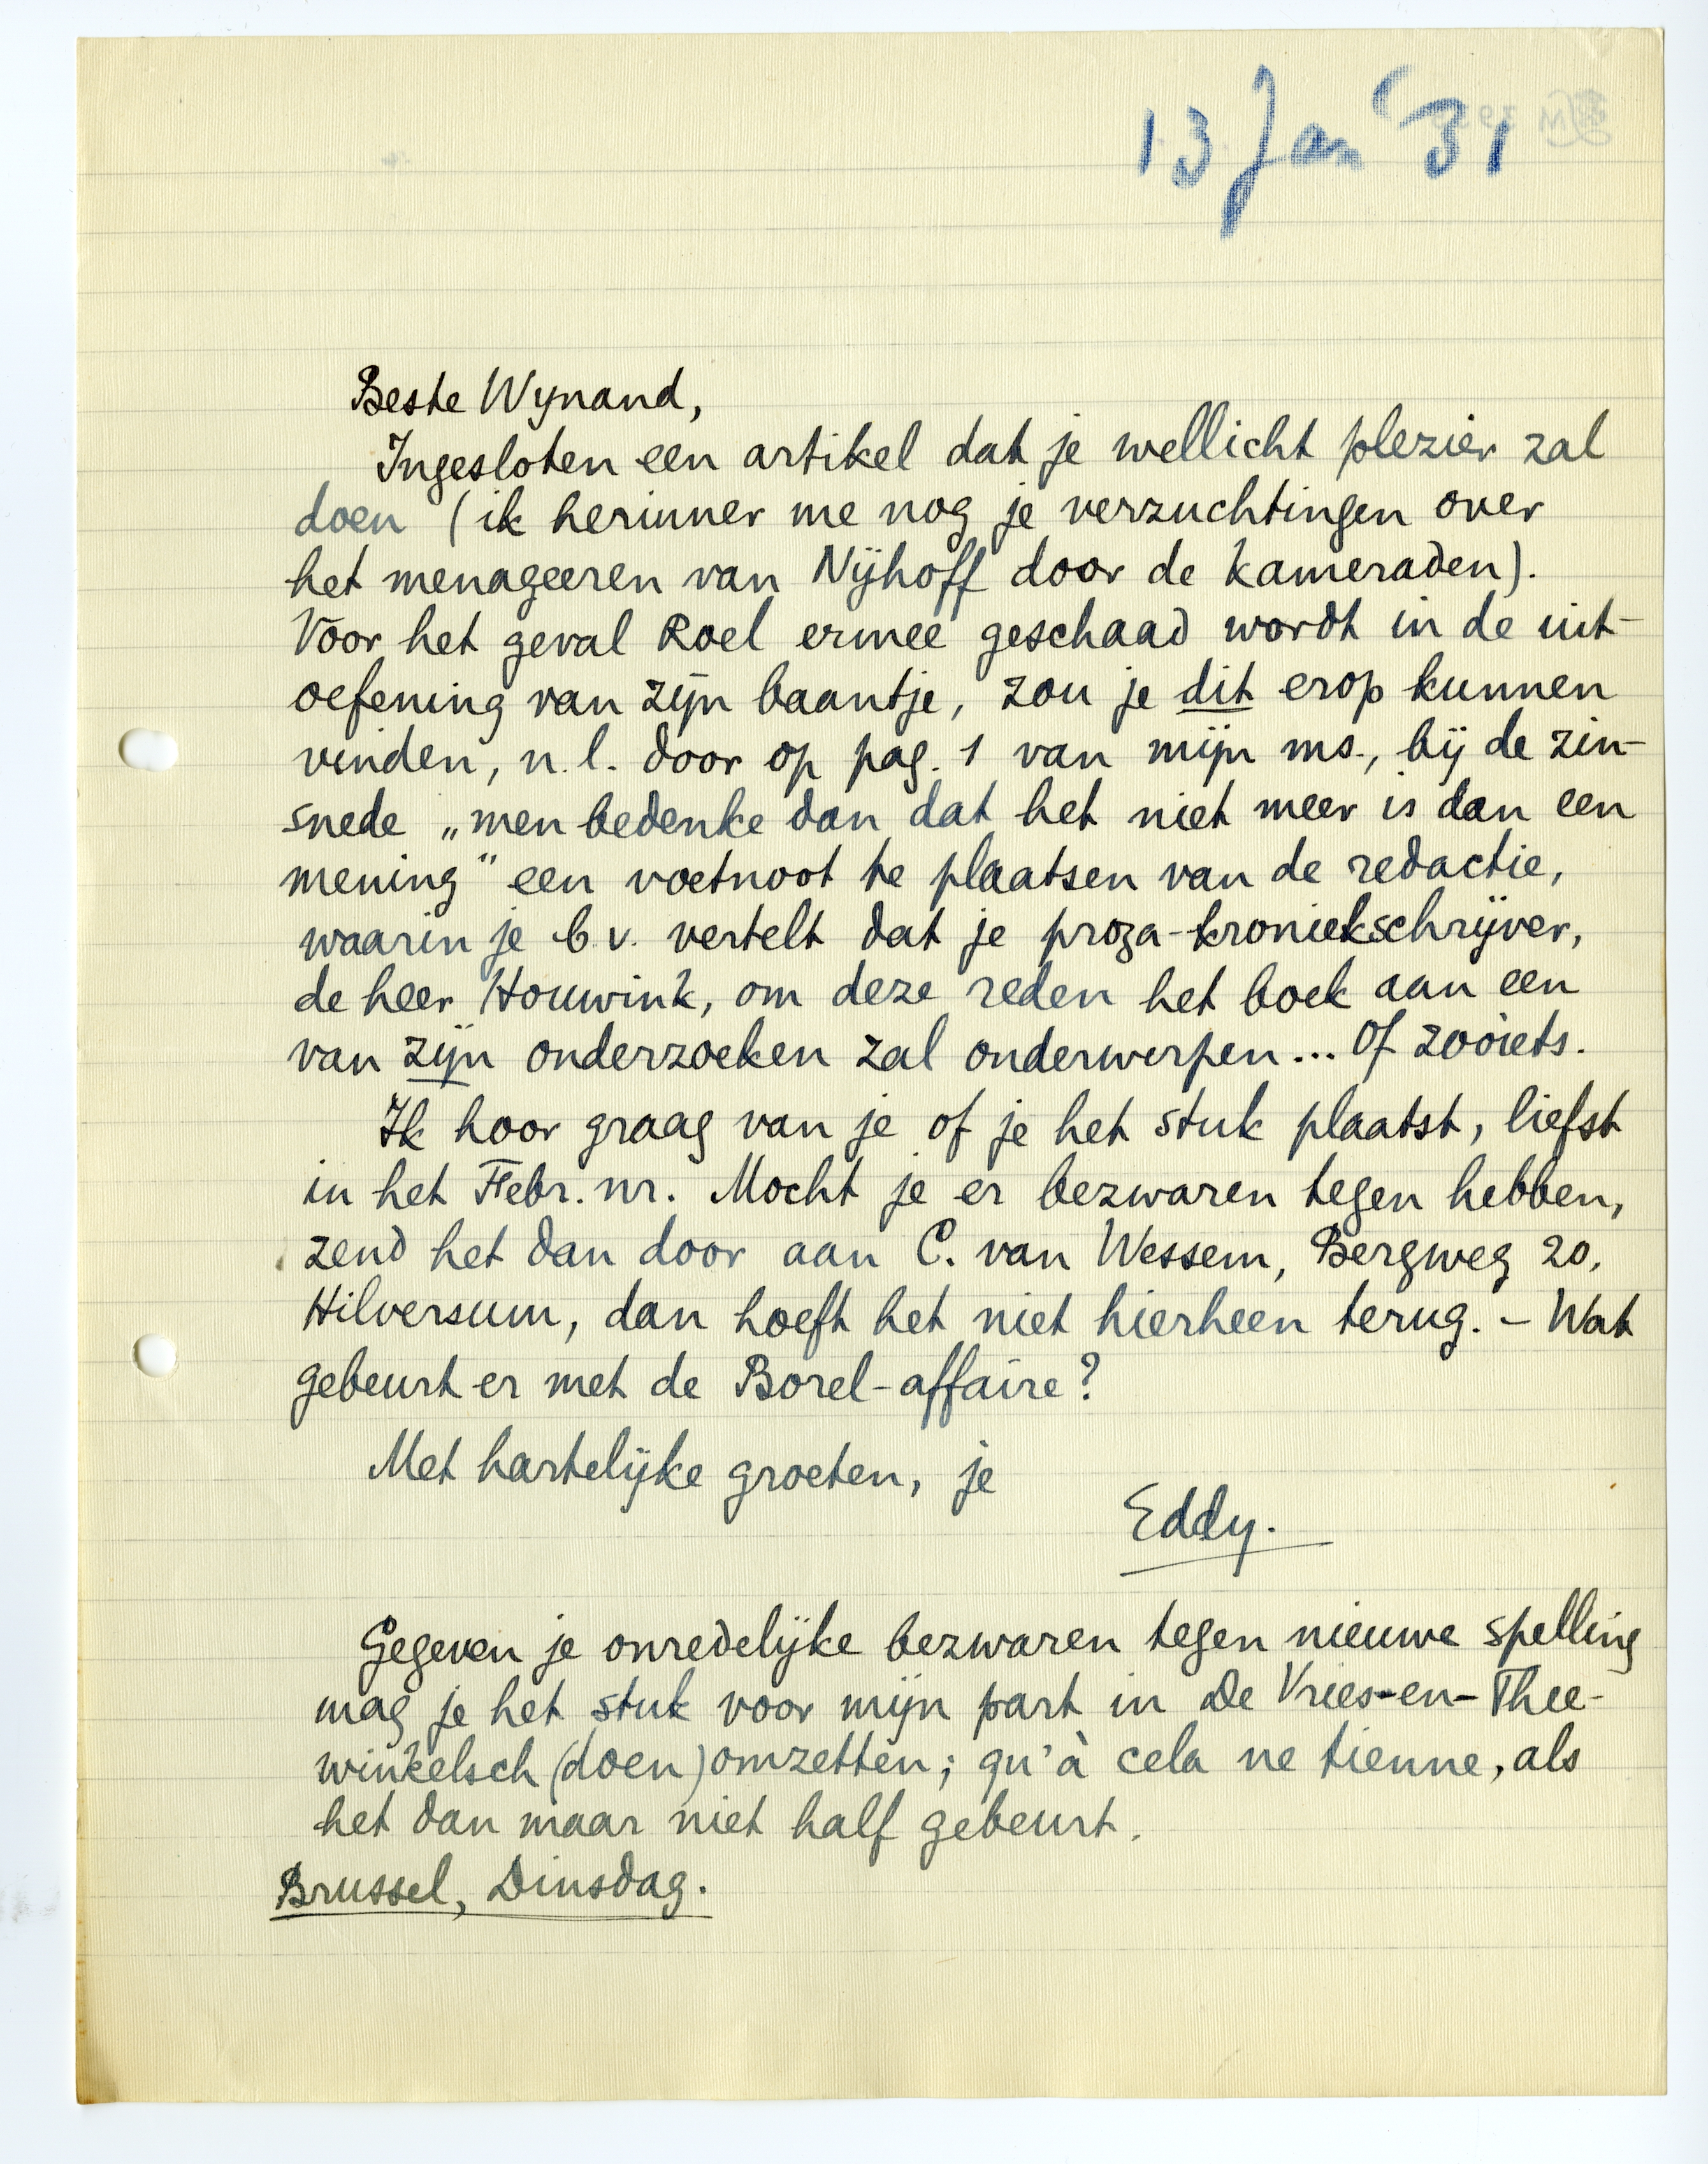 13 Jan '31
Beste Wynand,
Ingesloten een artikel dat je wellicht plezier zal
doen (ik herinner me nog je verzuchtingen over
het menageeren van Nijhoff door de kameraden).
Voor het geval Roel ermee geschaad wordt in de uit-
oefening van zijn baantje, zou je dit erop kunnen
vinden, n.l. door op pag. 1 van mijn ms., bij de zin-
snede „men bedenke dan dat het niet meer is dan een
mening" een voetnoot te plaatsen van de redactie,
waarin je b.v. vertelt dat je proza-kroniekschrijver,
de heer Houwink, om deze reden het boek aan een
van zijn onderzoeken zal onderwerpen... Of zooiets.
Ik hoor graag van je of je het stuk plaatst, liefst
in het Febr. nr. Mocht je er bezwaren tegen hebben,
zend het dan door aan C. van Wessem, Bergweg 20,
Hilversum, dan hoeft het niet hierheen terug. – Wat
gebeurt er met de Borel-affaire?
Met hartelijke groeten, je
Eddy.
Gegeven je onredelijke bezwaren tegen nieuwe spelling
mag je het stuk voor mijn part in De Vries-en-Thee-
winkelsch (doen) omzetten; qu'à cela ne tienne, als
het dan maar niet half gebeurt.
Brussel, Dinsdag.